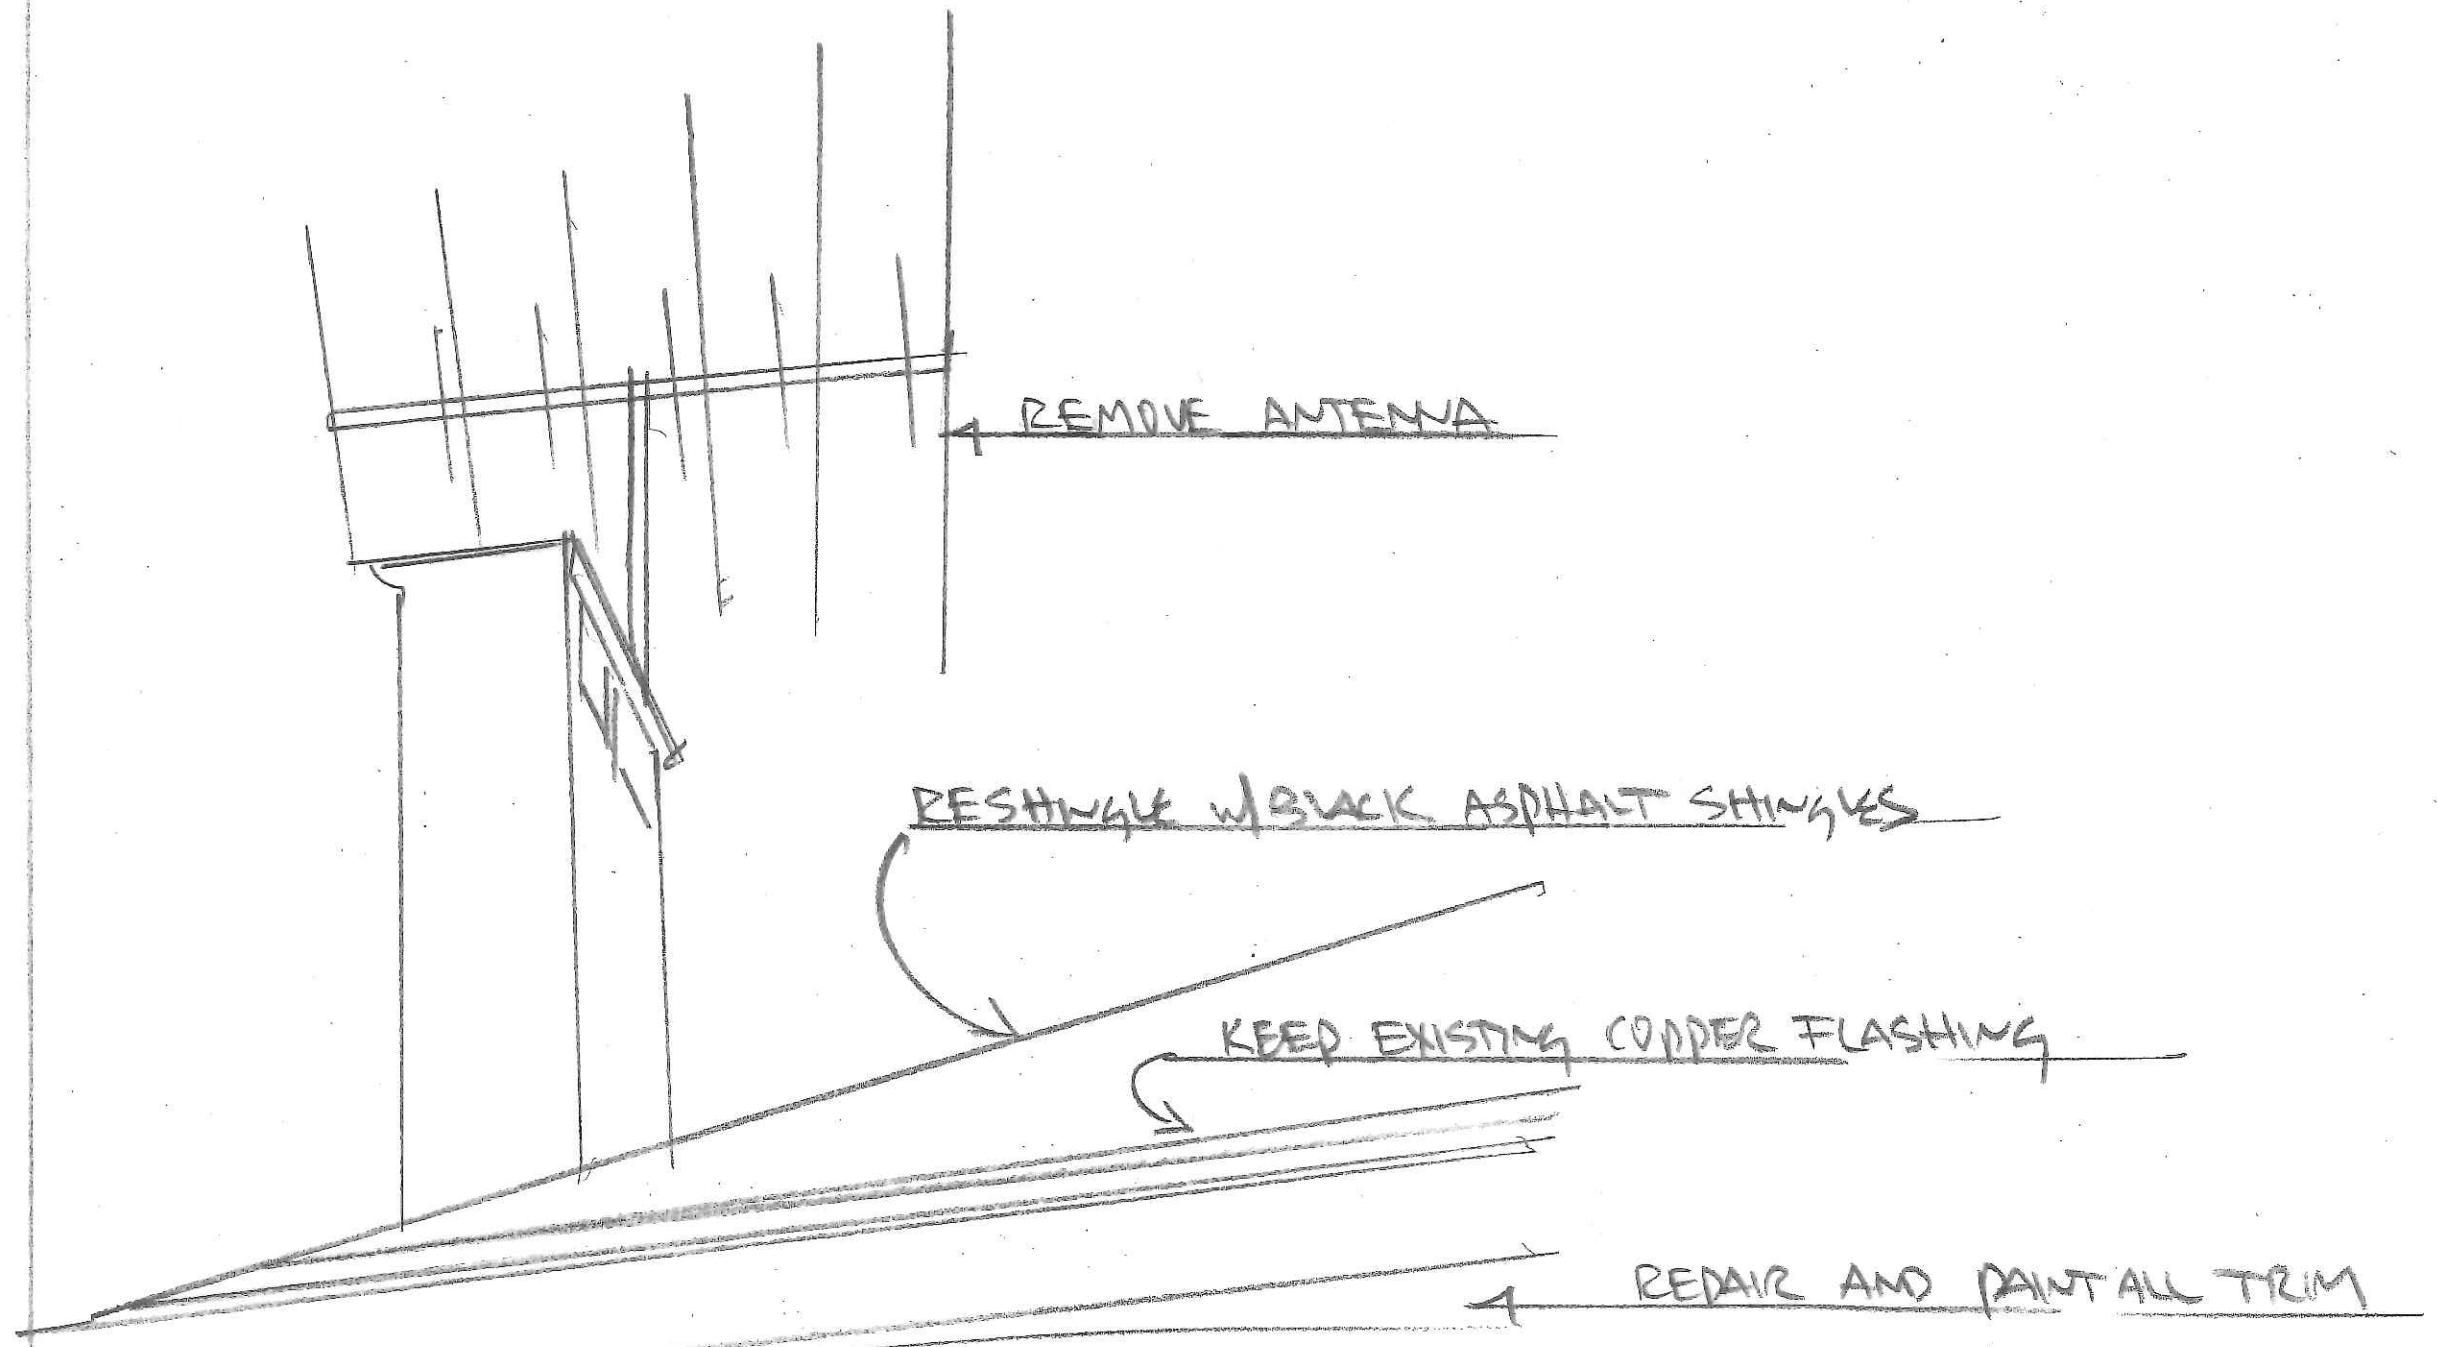 REMOVE ANTENNA
RESHINGLE W/ BLACK ASPHALT SHINGLES
KEEP EXISTING COPPER FLASHING
REPAIR AND PAINT ALL TRIM